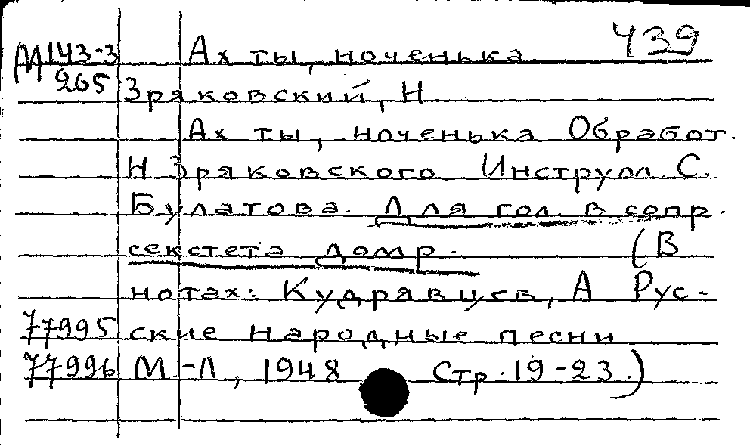 М143-3 Ах ты, ноченька 439
265 Зряковский, Н
Ах ты, ноченька Обработ.
Н Зряковского Инструм С.
Булатова. Для гол. в сопр.
секстета домр. (В
нотах: Кудрявцев, А Рус-
77995 ские народные песни
77996 М-Л, 1948 Стр. 19-23.)